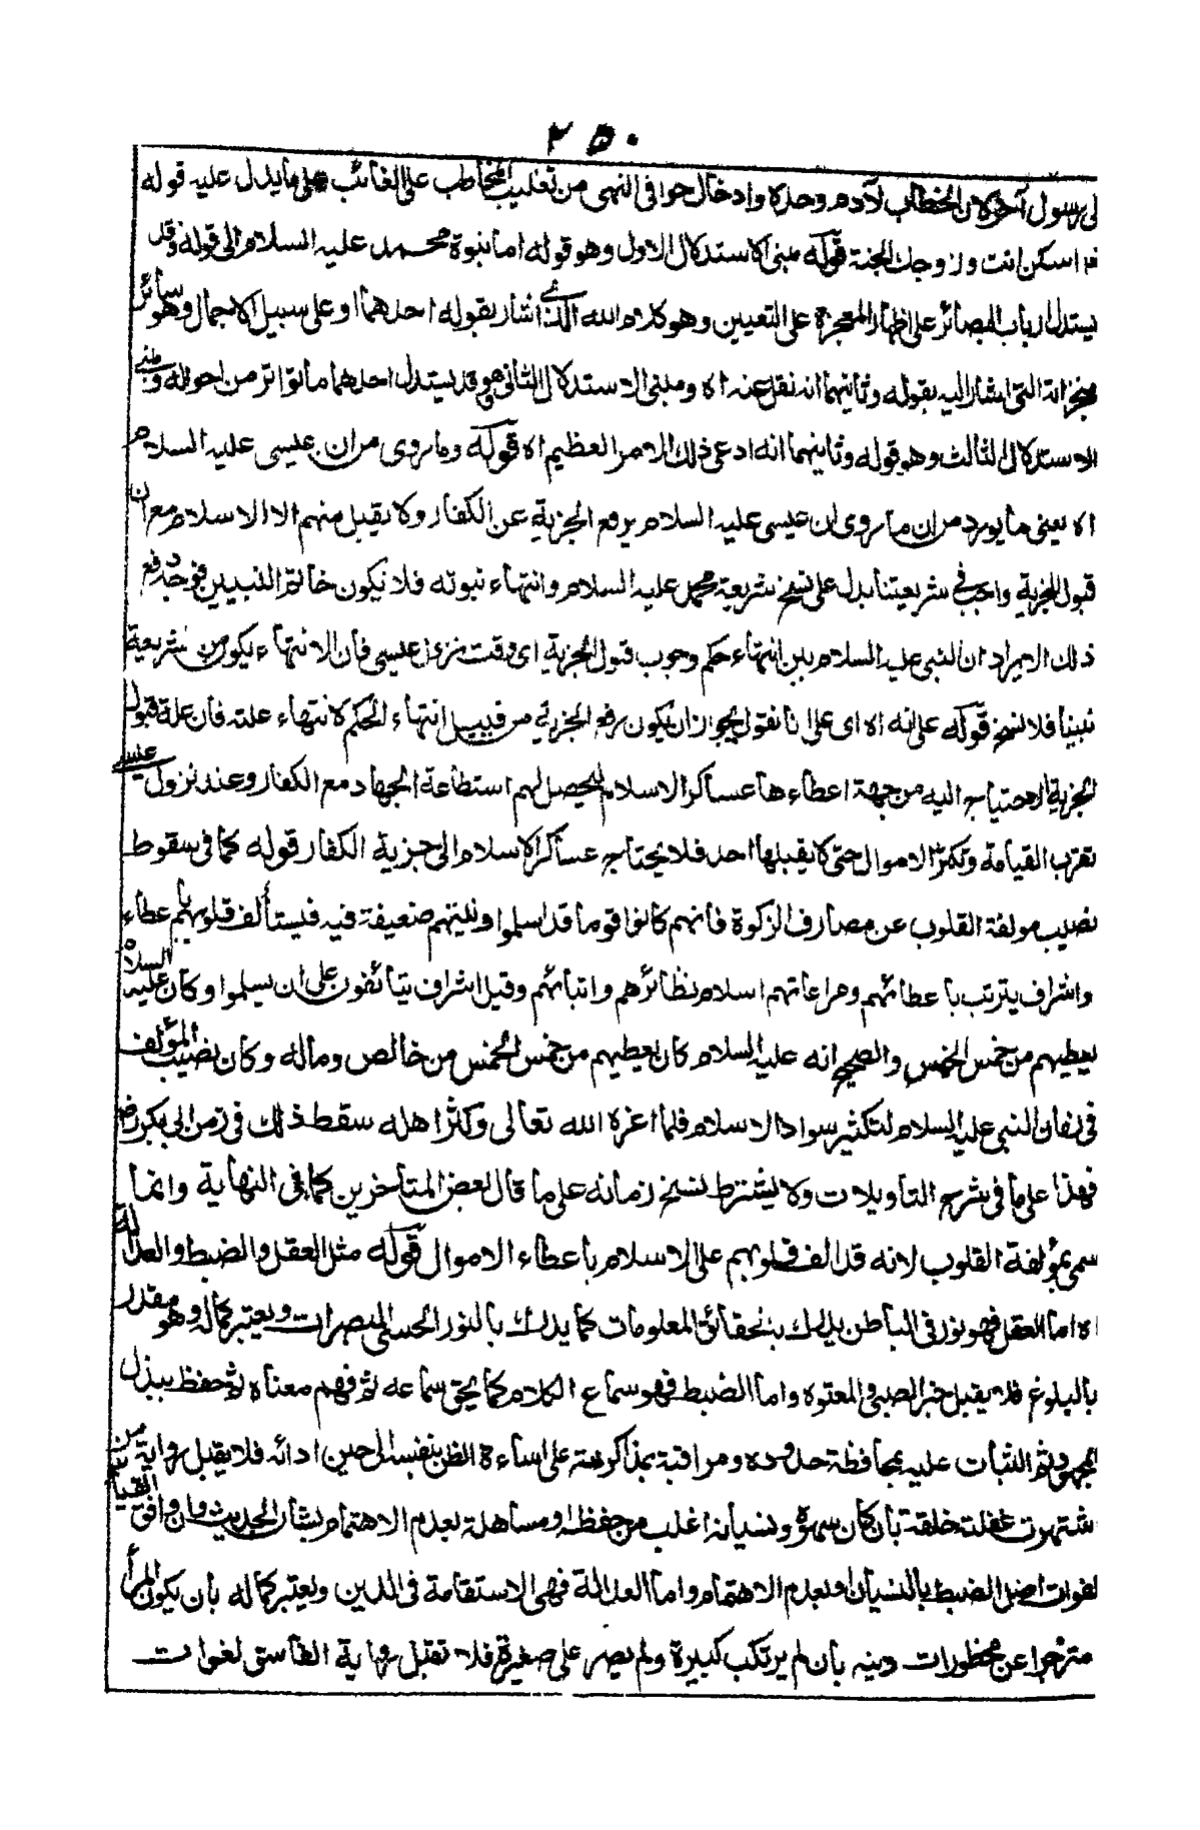 ٢٥٠
لى رسول آخر كان الخطاب لآدم وحده وادخال حوا فى النهى من تغليب المخاطب على الغائب على ما يدل عليه قوله
اسكن انت وزوجك الجنة قوله مبنى الاستدلال الاول وهو قوله اما نبوة محمد عليه السلام الى قوله وقد
يستدل ارباب البصائر على اظهار المعجزة على التعيين وهو كلام الله الذى اشار بقوله احدهما او على سبيل الاجمال وهو سائر
معجزاته التى اشار اليه بقوله وثانيهما انه نقل عنه اه ومبنى الاستدلال الثانى هو قد يستدل احدهما ما تواتر من احواله ومبنى
الاستدلال الثالث وهو قوله وثانيهما انه ادعى ذلك الامر العظيم اه قوله وما روى من ان عيسى عليه السلام
اه يعنى ما يورد من ان ما روى ان عيسى عليه السلام يرفع الجزية عن الكفار ولا يقبل منهم الا الاسلام مع ان
قبول الجزية واجب فى شريعتنا يدل على نسخ شريعة محمد عليه السلام وانتهاء نبوته فلا يكون خاتم النبيين فوجه دفع
ذلك الايراد ان النبى عليه السلام بين انتهاء حكم وجوب قبول الجزية اى وقت نزول عيسى فأن الانتهاء يكون من شريعة
نبينا فلا نسخ قوله على انه اه اى على انا نقول يجوز ان يكون رفع الجزية من قبيل انتهاء الحكم لانتهاء علته فأن علة قبول
الجزية الاحتياج اليه من جهة اعطاءها عساكر الاسلام ليحصل لهم استطاعة الجهاد مع الكفار وعند نزول عيسى
تقرب القيامة وتكثر الاموال حتى لا يقبلها احد فلا يحتاج عساكر الاسلام الى جزية الكفار قوله كما فى سقوط
نصيب مولفة القلوب عن مصارف الزكوة فأنهم كانوا قوما قد اسلموا ونيتهم ضعيفة فيه فيستألف قلوبهم بأعطاء
واشراف يترتب بأعطائهم ومراعاتهم اسلام نظائرهم واتباعهم وقيل اشراف يتألفون على ان يسلموا وكان عليه السلام
يعطيهم من خمس الخمس والصحيح انه عليه السلام كان يعطيهم من خمس الخمس من خالص وماله وكان نصيب المؤلف
فى زمان النبى عليه السلام لتكثير سواد الاسلام فلما اعزه الله تعالى وكثر اهله سقط ذلك فى زمن ابى بكر رض
فهذا على ما فى شرح التأويلات ولا يشترط نسخ زمانه على ما قال بعض المتأخرين كما فى النهاية وانما
سمى بمؤلفة القلوب لانه قد الف قلوبهم على الاسلام بأعطاء الاموال قوله مثل العقل والضبط والعدالة
اه اما العقل فهو نور فى الباطن يدرك به حقائق المعلومات كما يدرك بالنور الحسى المبصرات ويعتبر كماله وهو مقدر
بالبلوغ فلا يقبل خبر الصبى والمعتوه واما الضبط فهو سماع الكلام كما يحق سماعه ثم فهم معناه ثم حفظ ببذل
المجهود ثم الثبات عليه بمحافظة حدوده ومراقبة بمذاكرته على اساءة الظن بنفسه الى حين ادائه فلا يقبل رواية من
اشتهرت غفلته خلقة بأن كان سهوه ونسيانه اغلب من حفظه او مساهلة بعدم الاهتمام بشان الحديث وان وافق القياس
لفوت اصل الضبط بالنسيان او بعدم الاهتمام واما العدالة فهى الاستقامة فى الدين ويعتبر كماله بأن يكون المرأ
منزجرا عن محظورات دينه بأن لم يرتكب كبيرة ولم يصر على صغيرة فلا تقبل رواية الفاسق لفوات